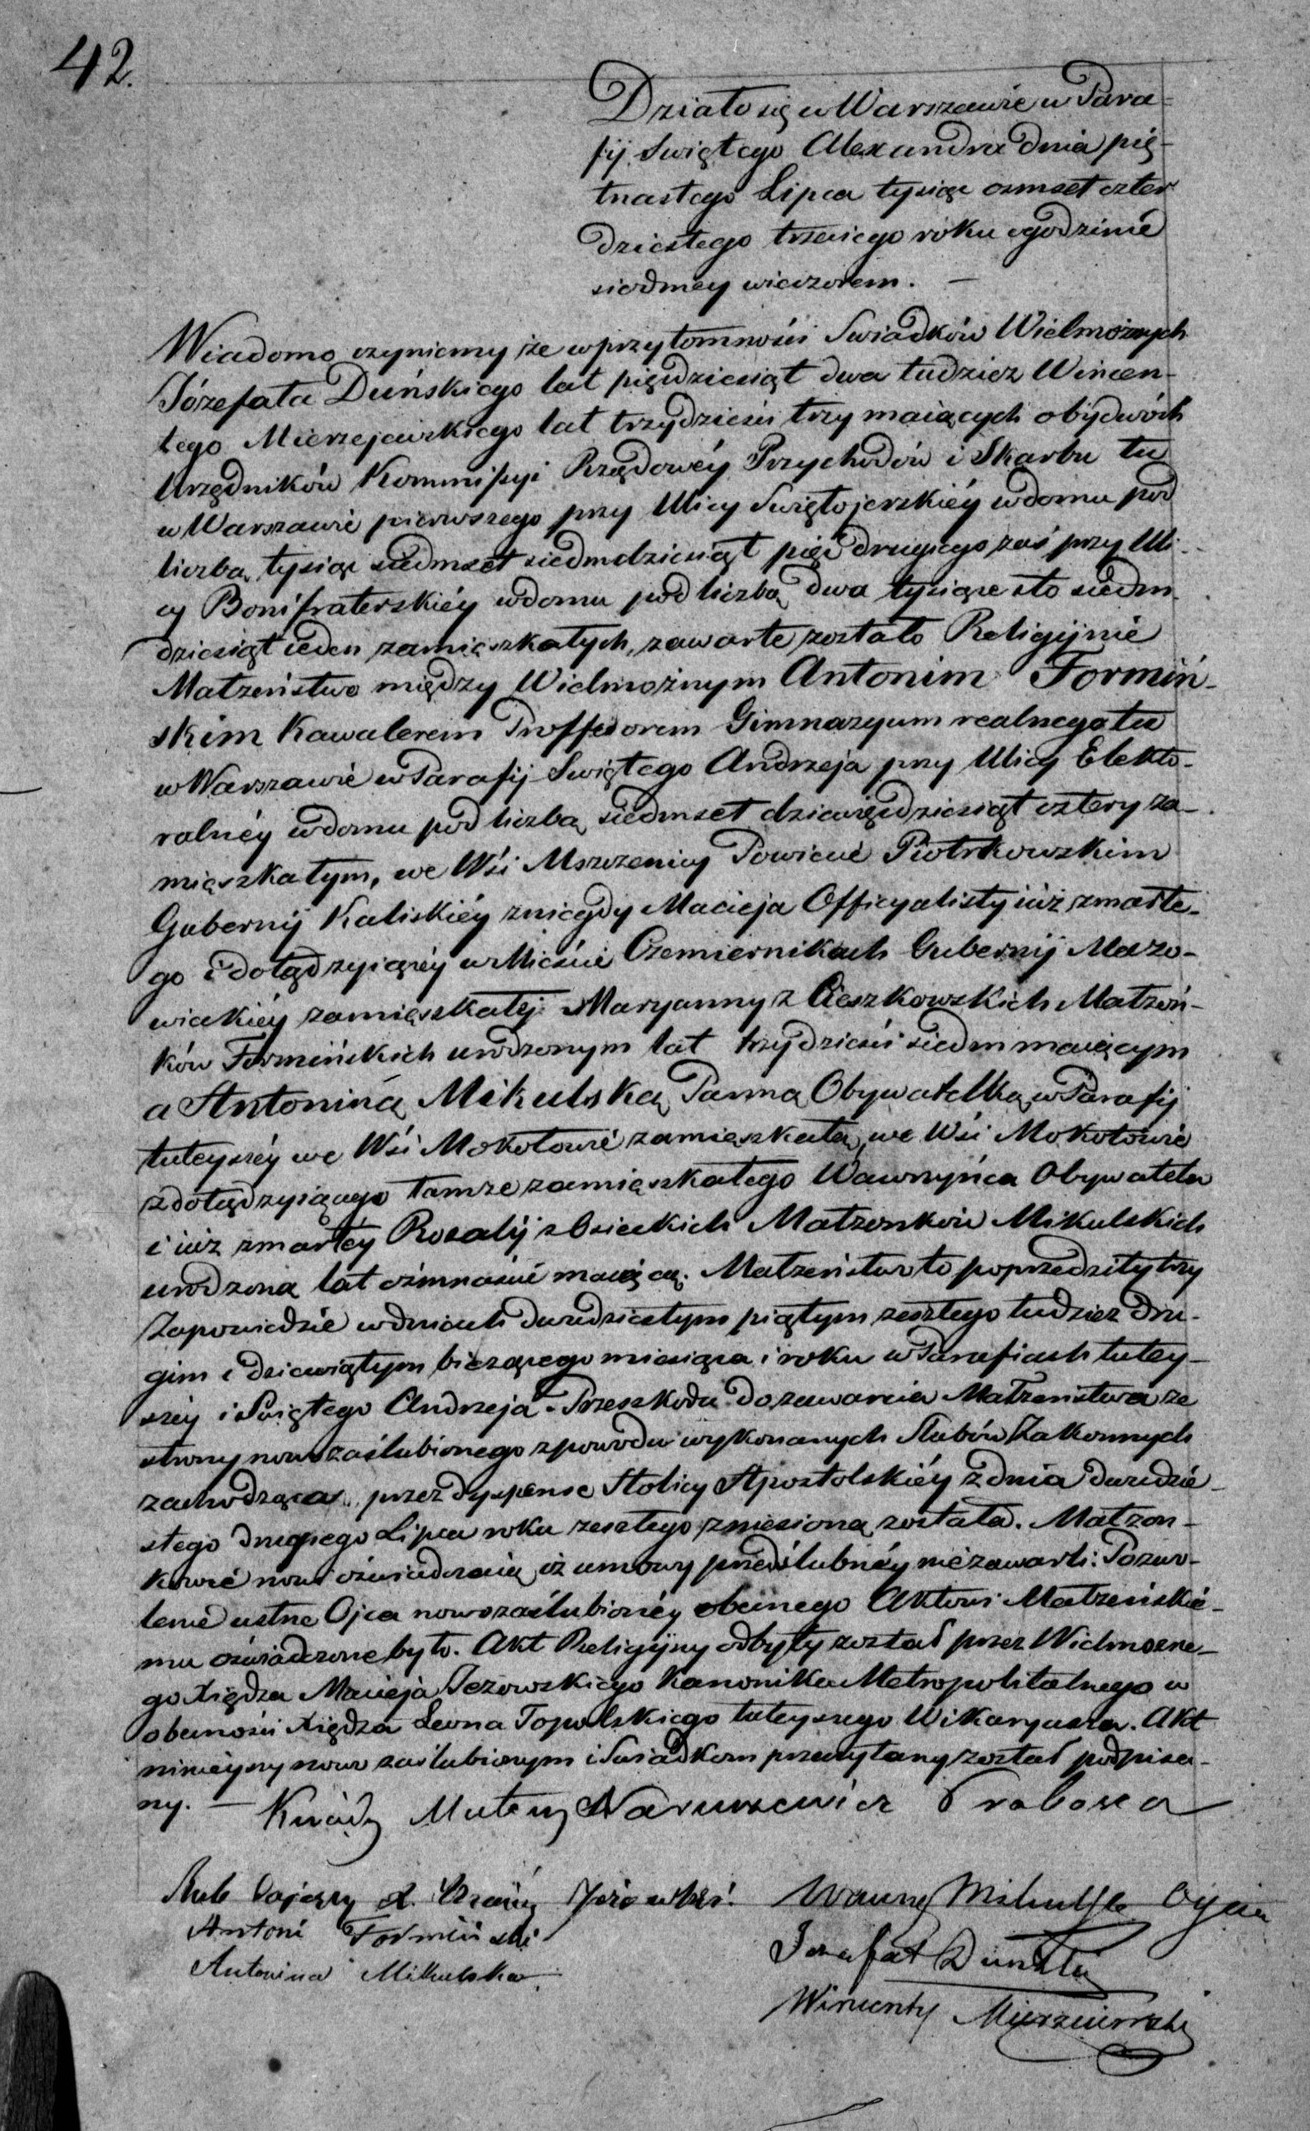 42.
Działo się w Warszawie w Para-
fij Świętego Alexandra dnia pię-
tnastego Lipca tysiąc ośmset czter
dziestego trzeciego roku o godzinie
siódmey wieczorem. —
Wiadomo czyniemy że w przytomności Świadków Wielmożnych
Józefata Duńskiego lat pięćdziesiąt dwa tudzież Wincen-
tego Mierzejewskiego lat trzydzieści trzy maiących obydwóch
Urzędników Kommissyi Rządowéy Przychodów i Skarbu tu
w Warszawie pierwszego przy Ulicy Swiętojerskiéy w domu pod
liczbą tysiąc siedmset siedmdziesiąt pięć drugiego zaś przy Uli-
cy Bonifraterskiéy w domu pod liczbą dwa tysiące sto siedm
dziesiąt ieden zamięszkałych, zawarte zostało Religijnie
Małżeństwo między Wielmożnym Antonim Formiń-
skim Kawalerem Proffesorem Gimnazyum realnego tu
w Warszawie w Parafij Świętego Andrzeja przy Ulicy Elekto-
ralnéy w domu pod liczbą siedmset dziewięćdziesiąt cztery za-
mięszkałym, we Wsi Mszczenicy Powiecie Piotrkowskim
Gubernij Kaliskiéy z niegdy Macieja Officyalisty iuż zmarłe-
go i dotąd żyiącéy w Mieście Czemiernikach Gubernij Mazo-
wieckiéy zamięszkałej Maryanny z Cieszkowskich Małżon-
ków Formińskich urodzonym lat trzydzieści siedm maiącym
a Antoniną Mikulską Panną Obywatelką w Parafij
tuteyszéy we Wsi Mokotowie zamięszkałą, we Wsi Mokotowie
z dotąd żyiącego tamże zamięszkałego Wawrzyńca Obywatela
i iuż zmarłéy Rozalij z Osieckich Małżonków Mikulskich
urodzoną lat ośmnaście maiącą. Małżeństwo to poprzedziły trzy
Zapowiedzie w dniach dwudziestym piątym zeszłego tudzież dru-
gim i dziewiątym bieżącego miesiąca i roku w Parafiach tutey-
széy i Świętego Andrzeja. Przeszkoda do zawarcia Małżeństwa ze
strony nowozaślubionego z powodu wykonanych Slubów Zakonnych
zachodząca, przez dyspensę Stolicy Apostolskiéy z dnia dwudzie-
stego drugiego Lipca roku zeszłego zniesioną została. Małżon-
kowie nowi oświadczaią iż umowy przedślubnéy niezawarli. Pozwo-
lenie ustne Ojca nowozaślubionéy obecnego Aktowi Małżeńskie-
mu oświadczone było. Akt Religijny odbyty został przez Wielmożne-
go Xiędza Macieja Jeżowskiego Kanonika Metropolitalnego w
obecności Xiędza Leona Topolskiego tuteyszego Wikaryusza. Akt
ninieyszy nowo zaślubionym i Świadkom przeczytany został podpisa-
ny. — Xsiądz Mateusz Naruszewicz Proboszcz
Ślub daiący X. Maciéj Jeżowski.
Antoni Formiński
Antonina Mikulska
Wawrz Mikulski Ojciec
Jozafat Dunski
Wincenty Mierzeiewski